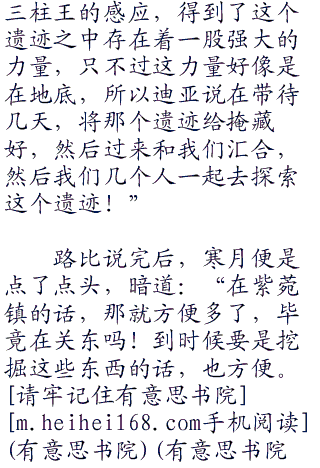 三柱王的感应，得到了这个
遗迹之中存在着一股强大的
力量，只不过这力量好像是
在地底，所以迪亚说在带待
几天，将那个遗迹给掩藏
好，然后过来和我们汇合，
然后我们几个人一起去探索
这个遗迹！”
路比说完后，寒月便是
点了点头，暗道：“在紫菀
镇的话，那就方便多了，毕
竟在关东吗！到时候要是挖
掘这些东西的话，也方便。
[请牢记住有意思书院]
[m.heihei168.com手机阅读]
(有意思书院)(有意思书院